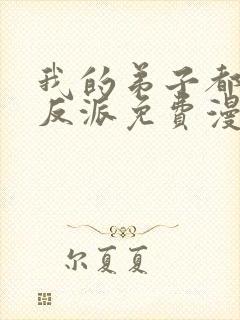 我的弟子都
反派免费漫
尔夏夏